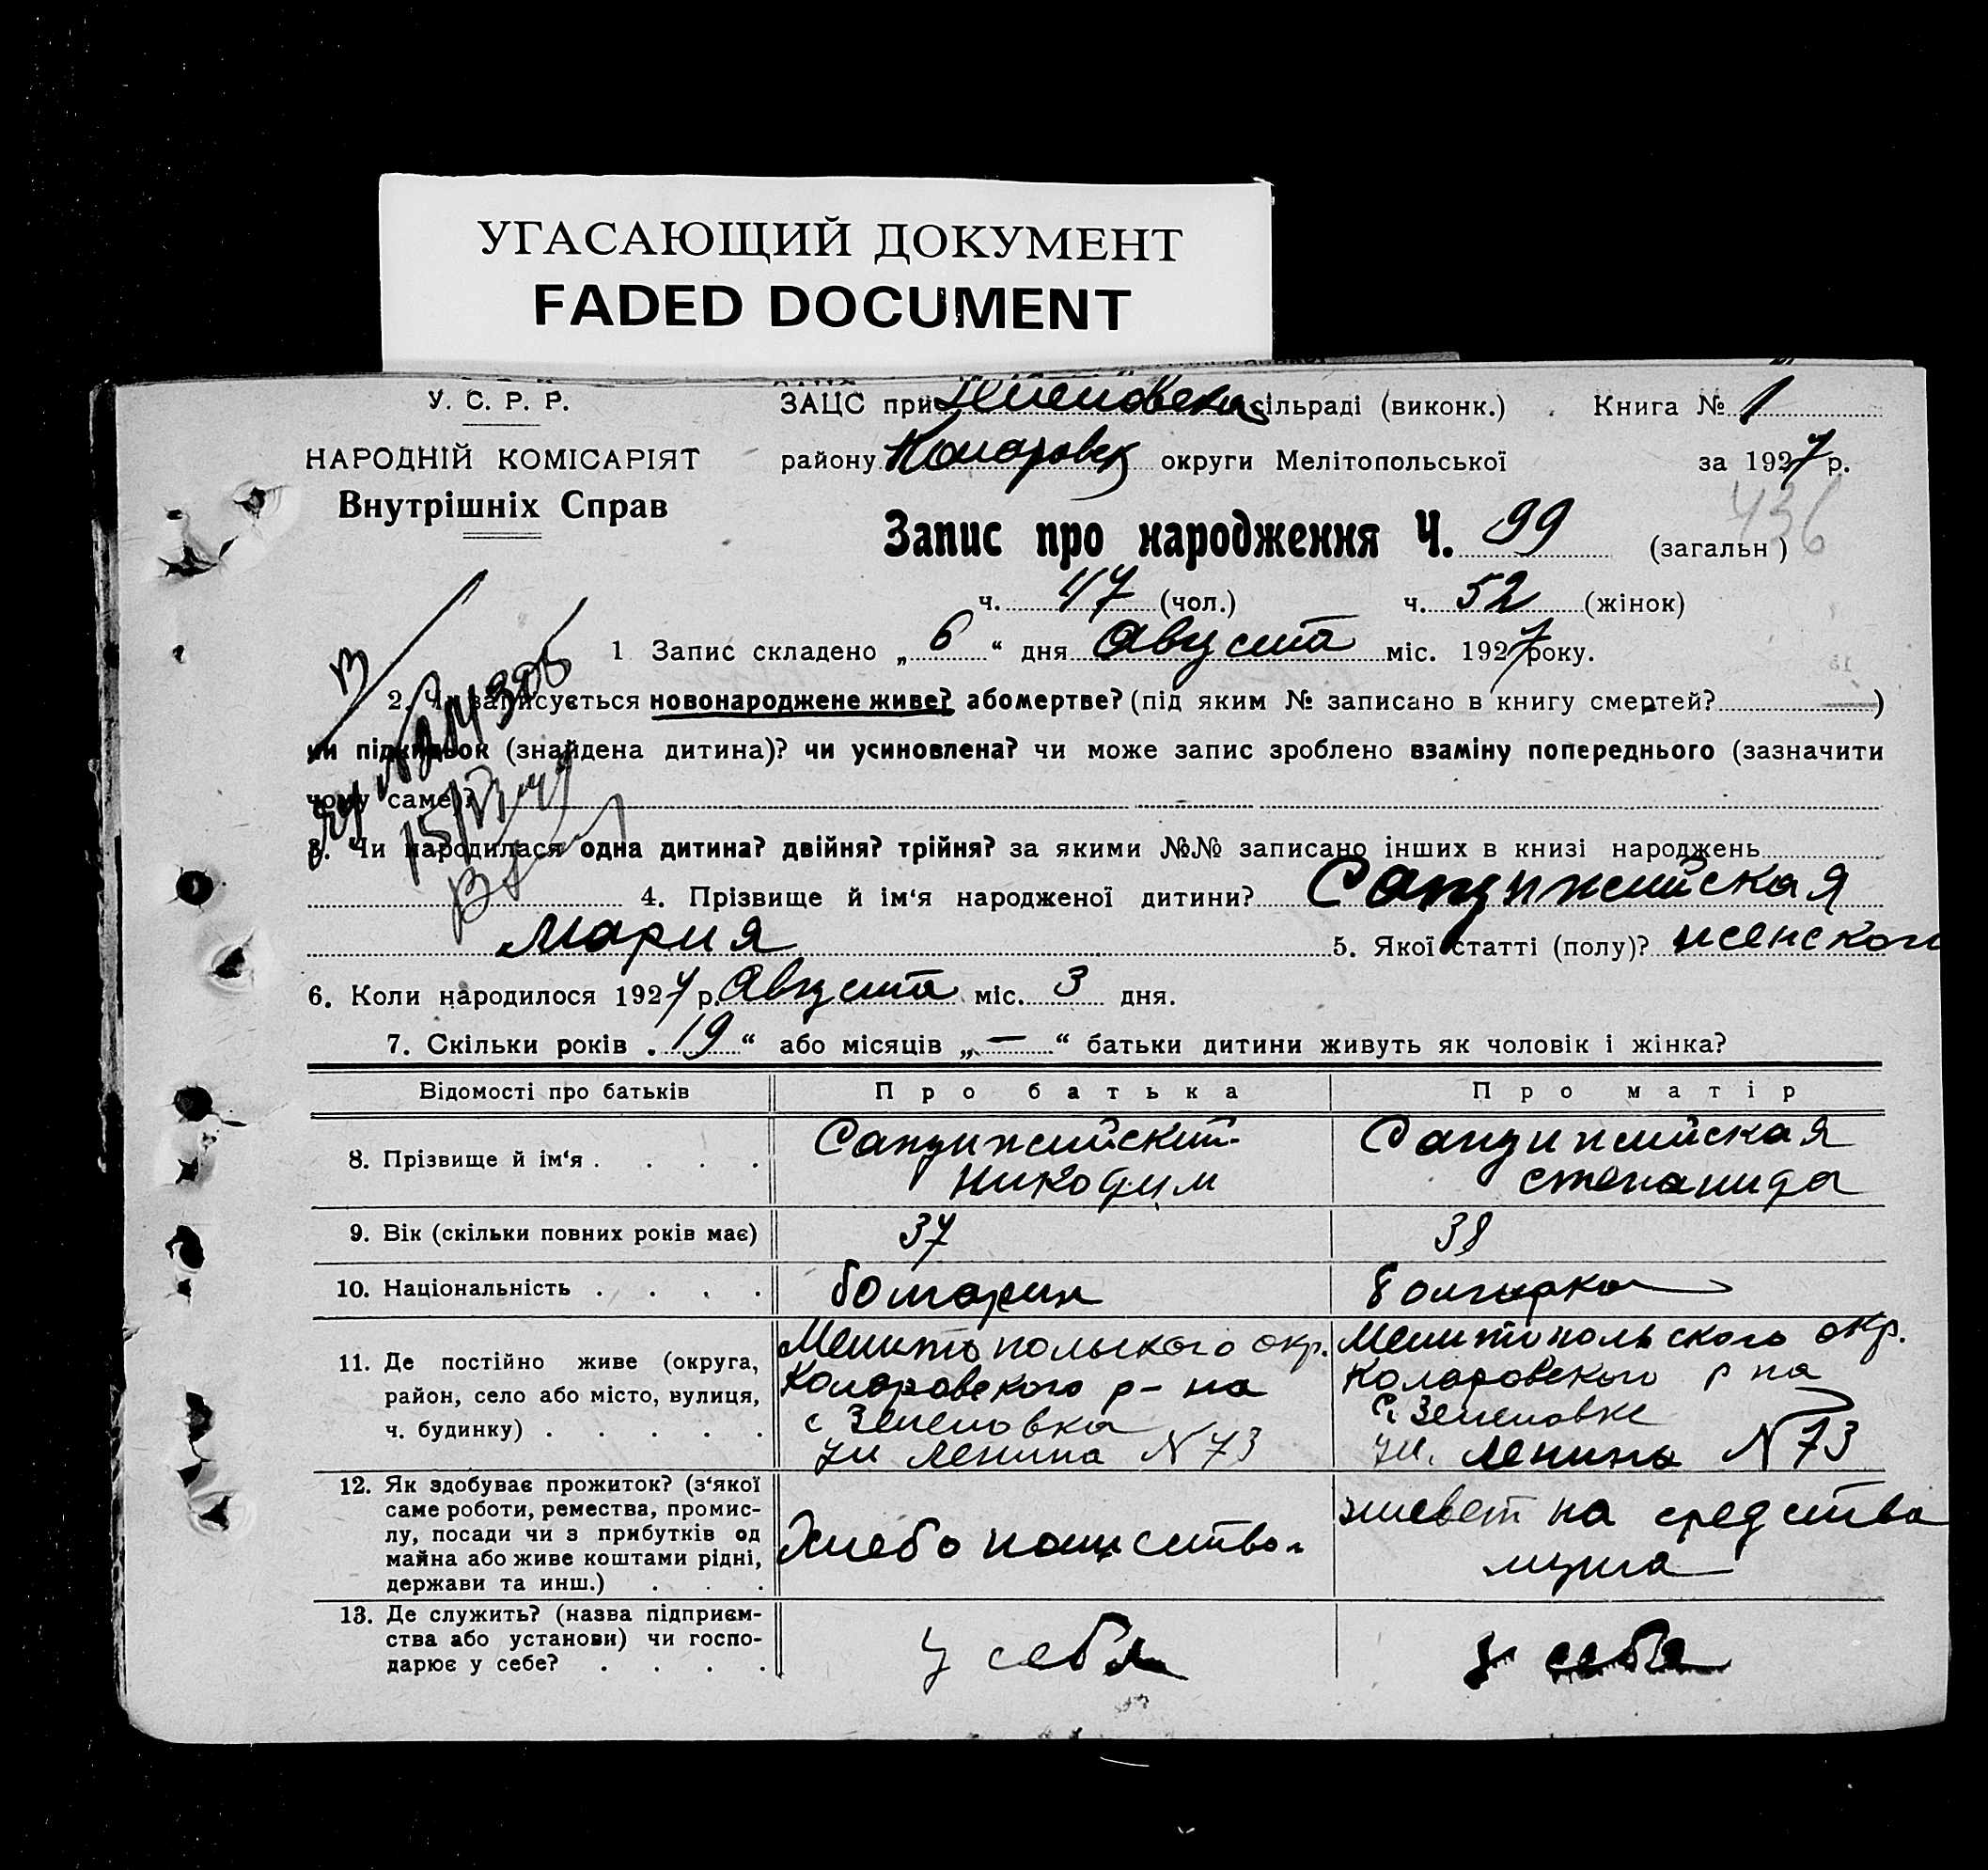 УГАСАЮЩИЙ ДОКУМЕНТ
FADED DOCUMENT
У. С. Р. Р.
НАРОДНІЙ КОМІСАРІЯТ
Внутрішніх Справ
ЗАЦС при сільраді (виконк.) Книга № 1
району Коларовск округи Мелітопольської за 1927 р.
436
Запис про народження Ч. 99 (загальн)
ч. 47 (чол.) ч. 52 (жінок)
1 Запис складено „ 6 “ дня Августа міс. 1927 року.
2. Чи записується новонароджене живе? або мертве? (під яким № записано в книгу смертей? )
чи підкидьок (знайдена дитина)? чи усиновлена? чи може запис зроблено взаміну попереднього (зазначити
чому саме)?
3. Чи народилася одна дитина? двійня? трійня? за якими №№ записано інших в книзі народжень
4. Прізвище й ім‘я народженої дитини? Сандижийская
Мария 5. Якої статті (полу)? женского
6. Коли народилося 1927 р. Августа міс. 3 дня.
7. Скільки років „ 19 “ або місяців „ — “ батьки дитини живуть як чоловік і жінка?
Відомості про батьків Про батька Про матір
8. Прізвище й ім‘я . . . . Сандижийский Никодим Сандижийская Степанида
9. Вік (скільки повних років має) 37 38
10. Національність . . . . болгарин болгарка
11. Де постійно живе (округа,
район, село або місто, вулиця,
ч. будинку) . . . . .
Мелитопольского окр.
Коларовского р-на
с Зеленовка
ул Ленина N 73
Мелитопольского окр.
Коларовского р на
с. Зеленовке
ул. Ленина N 73
12. Як здобуває прожиток? (з‘якої
саме роботи, ремества, промис-
лу, посади чи з прибутків од
майна або живе коштами рідні,
держави та инш.) . . .
Хлебопашество
живет на средства
мужа
13. Де служить? (назва підприєм-
ства або установи) чи госпо-
дарює у себе? . . . .
у себя
у себя